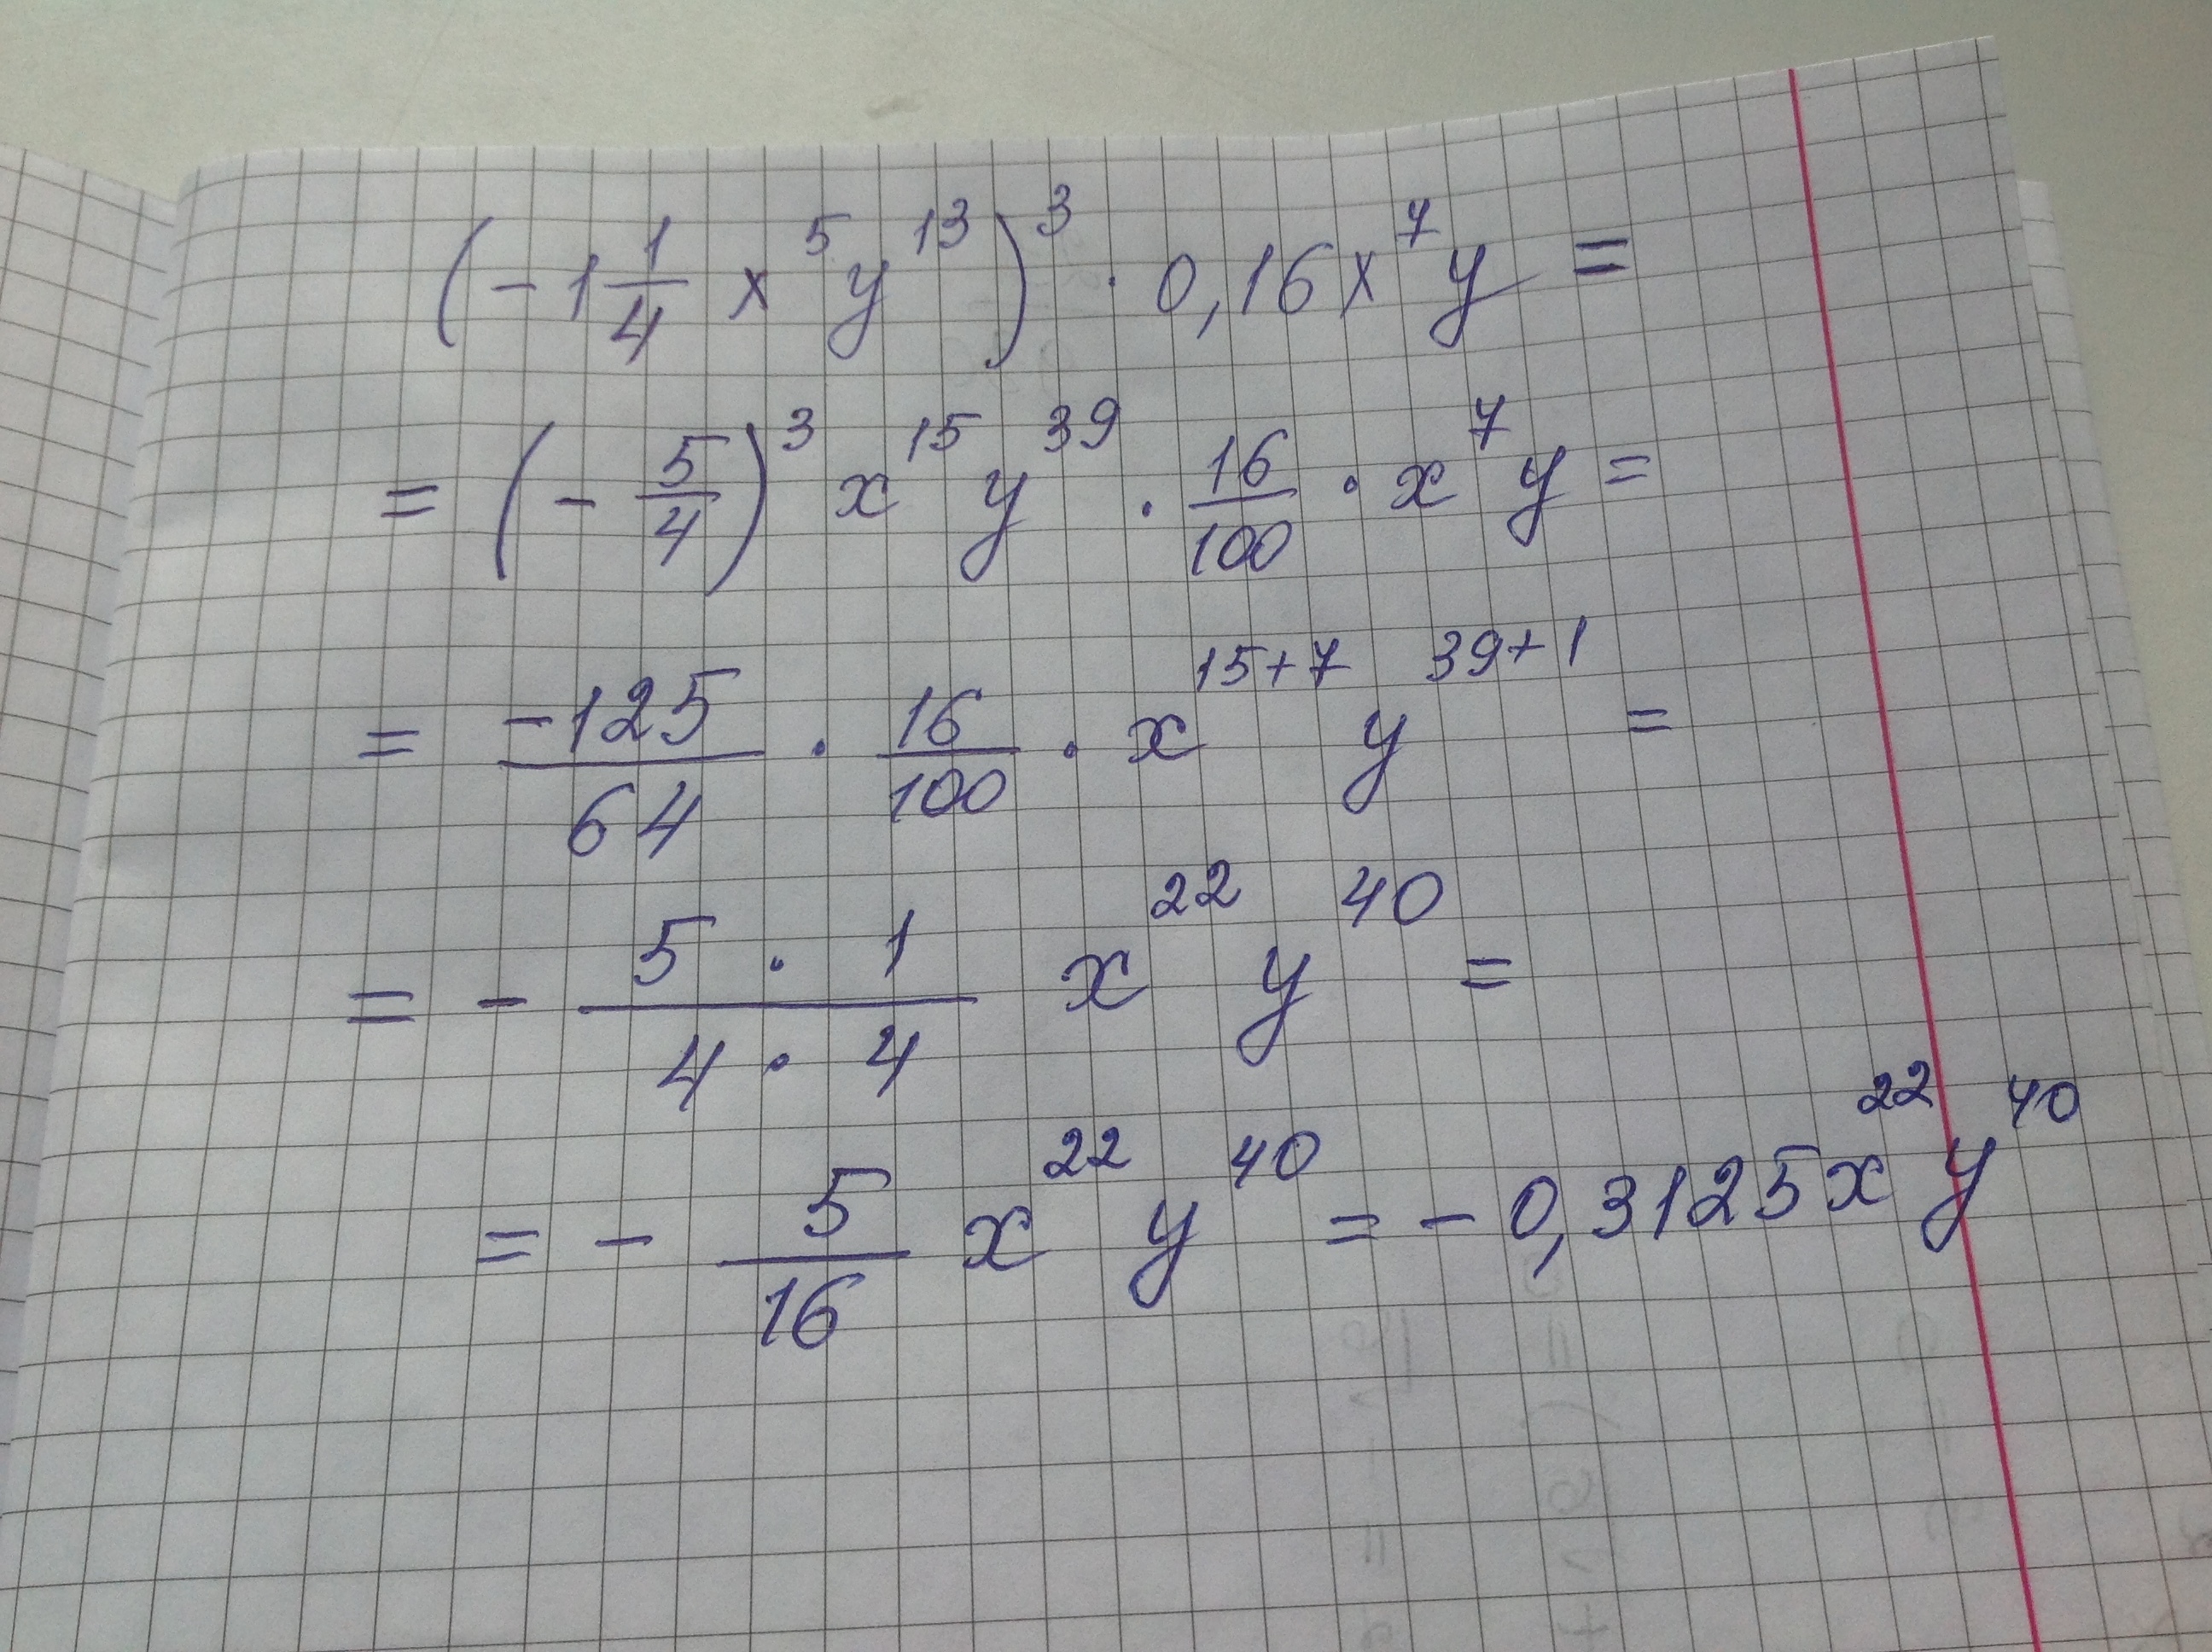 (-1 1/4 x^5 y^13)^3 · 0,16x^7 y =
= (-5/4)^3 x^15 y^39 · 16/100 · x^7 y =
= -125/64 · 16/100 · x^(15+7) y^(39+1) =
= - (5 · 1)/(4 · 4) x^22 y^40 =
= - 5/16 x^22 y^40 = - 0,3125x^22 y^40